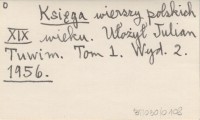 Księga wierszy polskich
XIX wieku. Ułożył Julian
Tuwim. Tom 1. Wyd. 2.
1956.